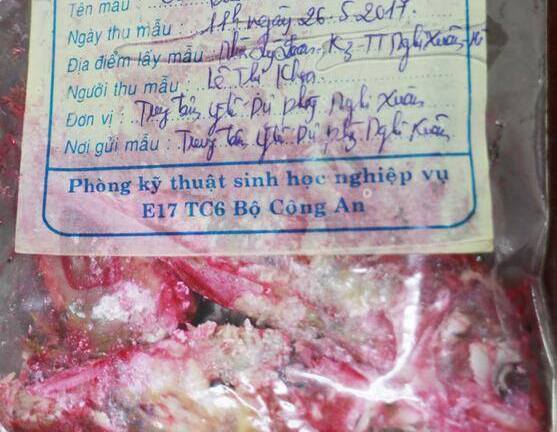 Tên mẫu :
Ngày thu mẫu : 11h ngày 26.5.2017.
Địa điểm lấy mẫu K3 - TT Nghi Xuân -
Người thu mẫu : Lê Thị
Đơn vị : Trung tâm y tế Dự phòng Nghi Xuân
Nơi gửi mẫu : Trung tâm y tế Dự phòng Nghi Xuân
Phòng kỹ thuật sinh học nghiệp vụ
E17 TC6 Bộ Công An